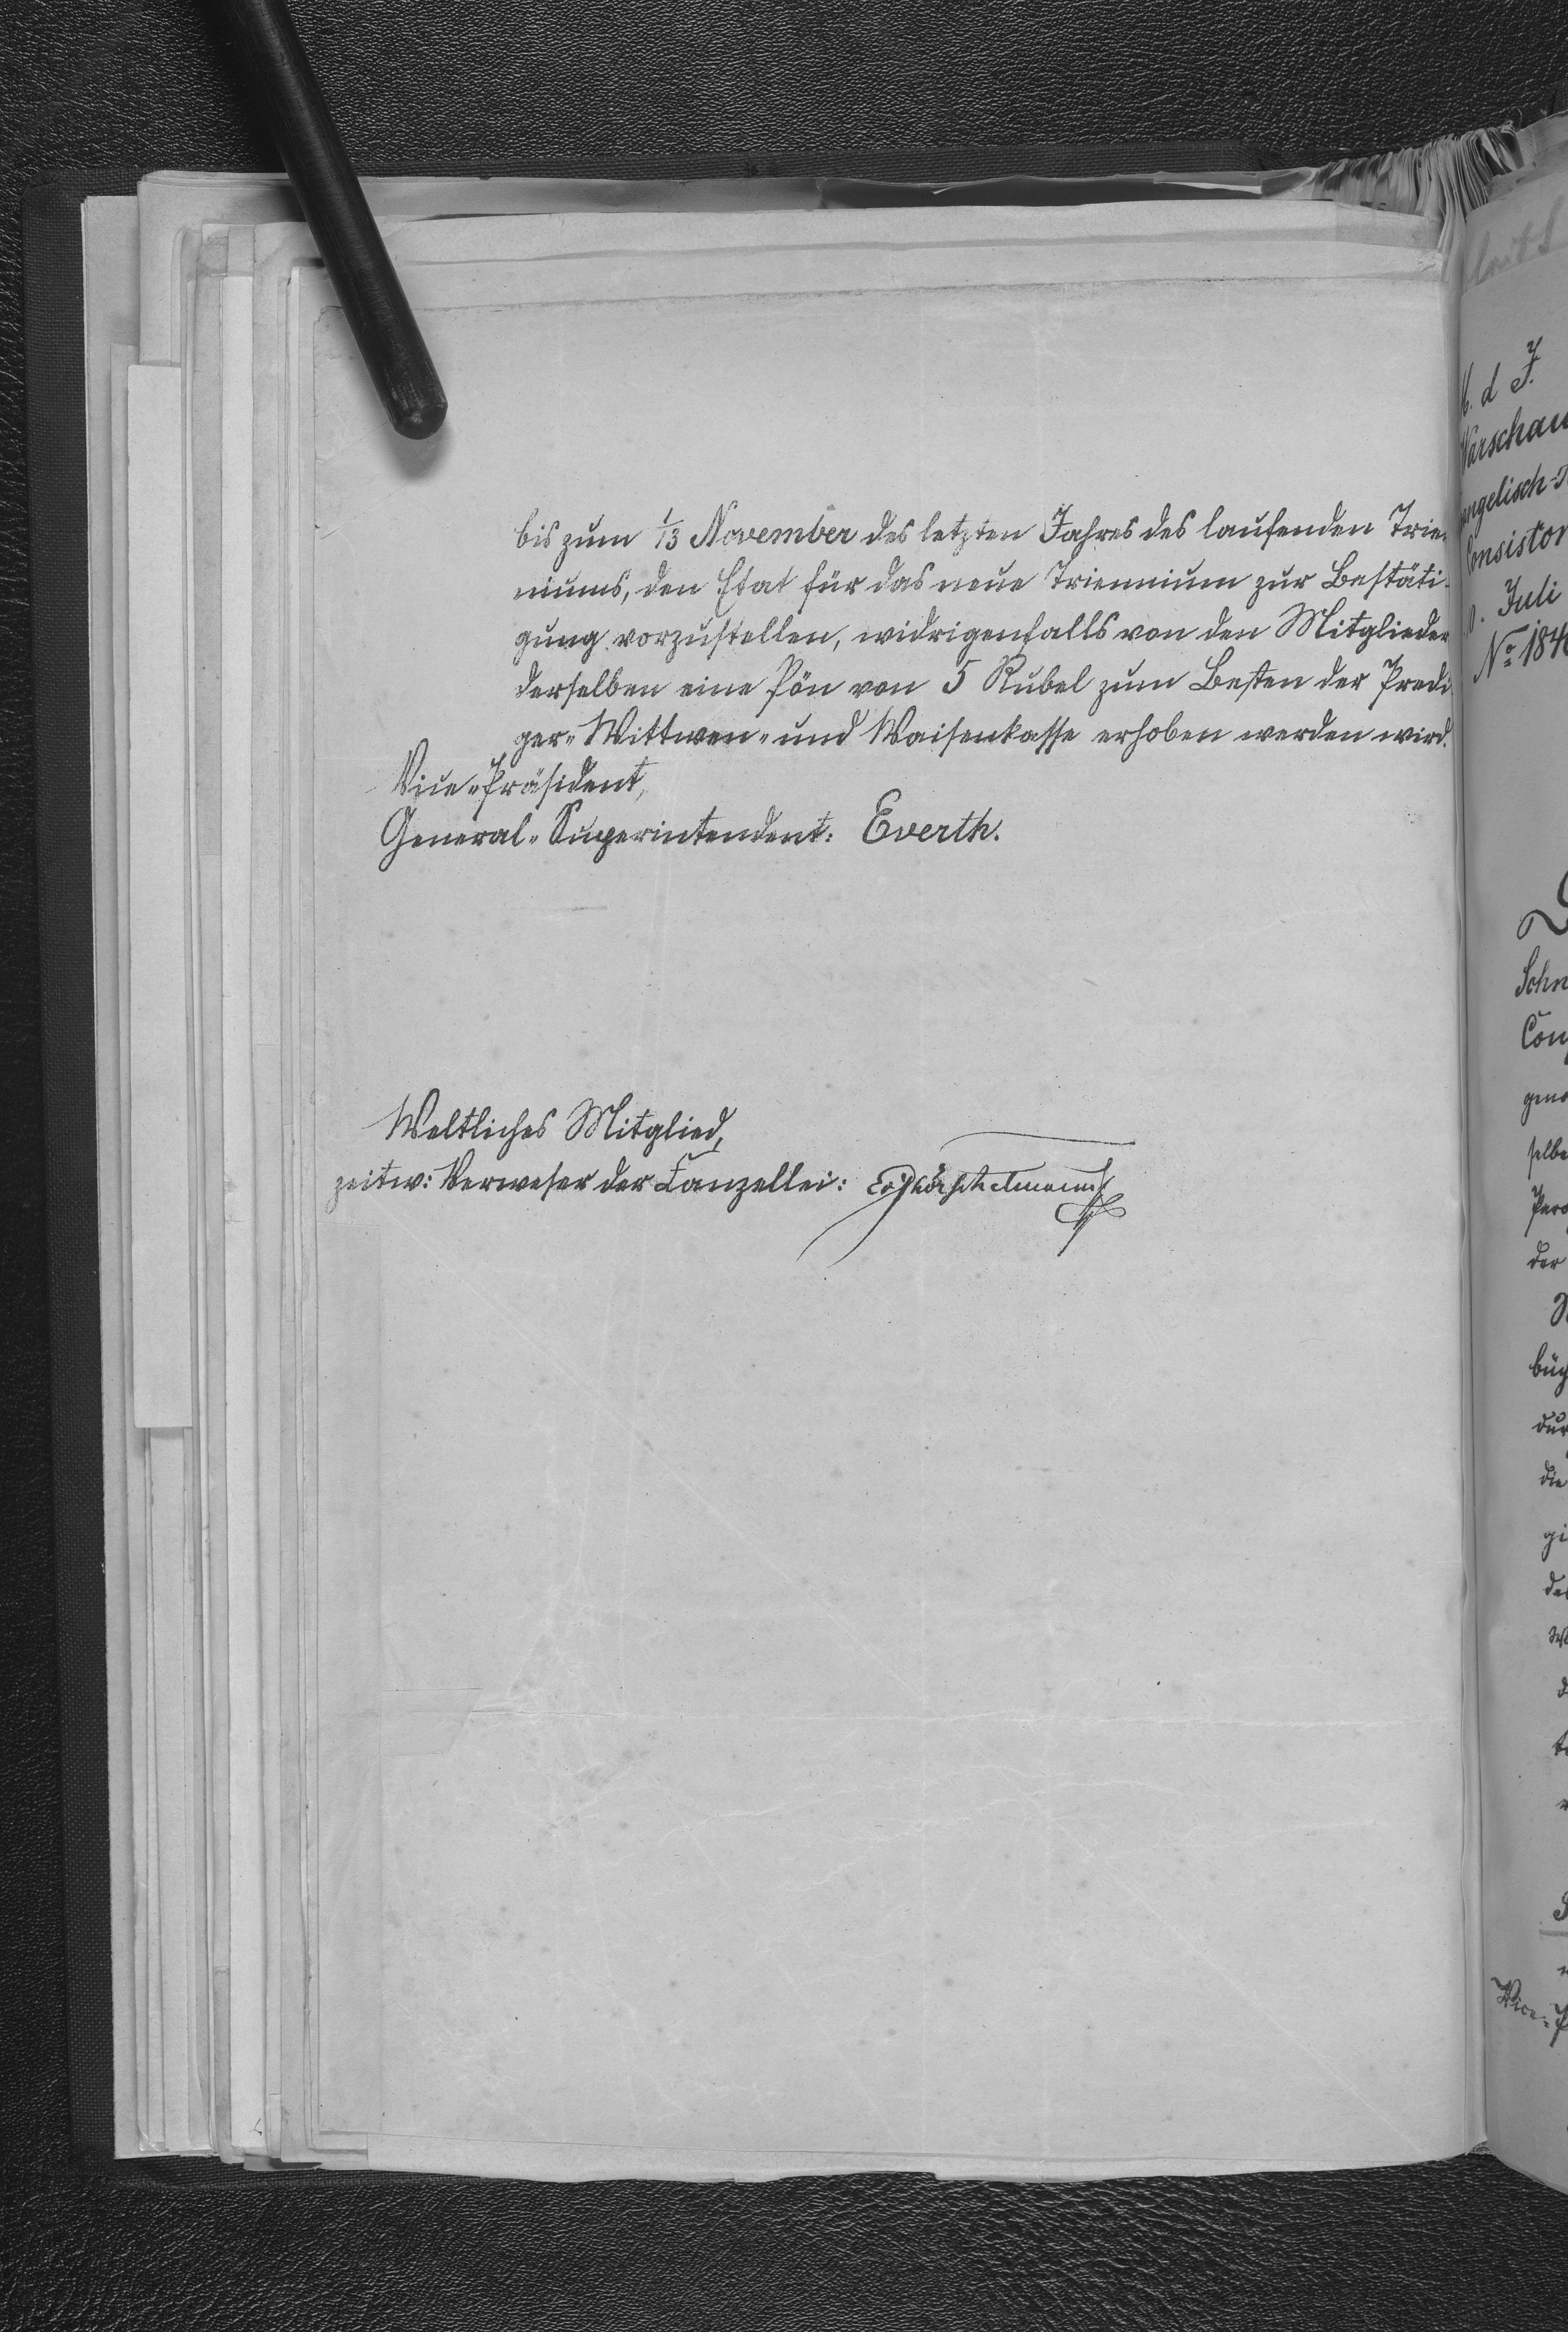 bis zum 1/13 November des letzten Jahres des laufenden Trien-
niums, den Etat für das neue Triennium zur Bestäti-
gung vorzustellen, widrigenfalls von den Mitglieder
derselben eine Pön von 5 Rubel zum Besten der Predi
ger-Wittwen- und Waisenkasse erhoben werden wird.
Vice-Präsident,
General-Superintendent: Everth.
Weltliches Mitglied,
zeitw: Verweser der Canzellei:
d J.
Warschau
angelisch-
Consistor
Juli
No 184
Schn
Con
der
die
Vice-P